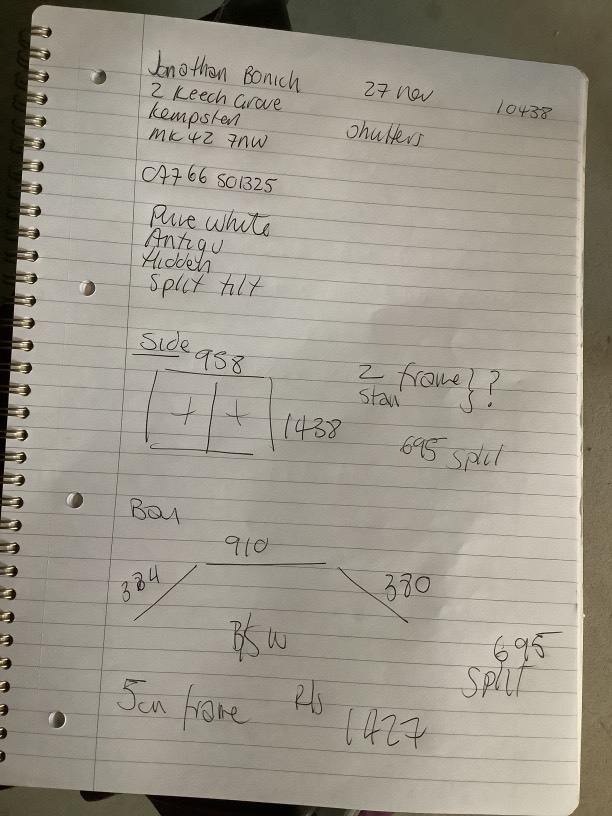 Jonathan Bonich
27 nov
10438
2 Keech Grove
Kempston
Shutters
MK42 7NW
07766 501325
Pure white
Antiqu
Hidden
Split tilt
Side
958
Z frame } ?
Stan
1438
695 split
Bay
910
384
380
B/S W
695
Split
5cm frame
R/s
1427